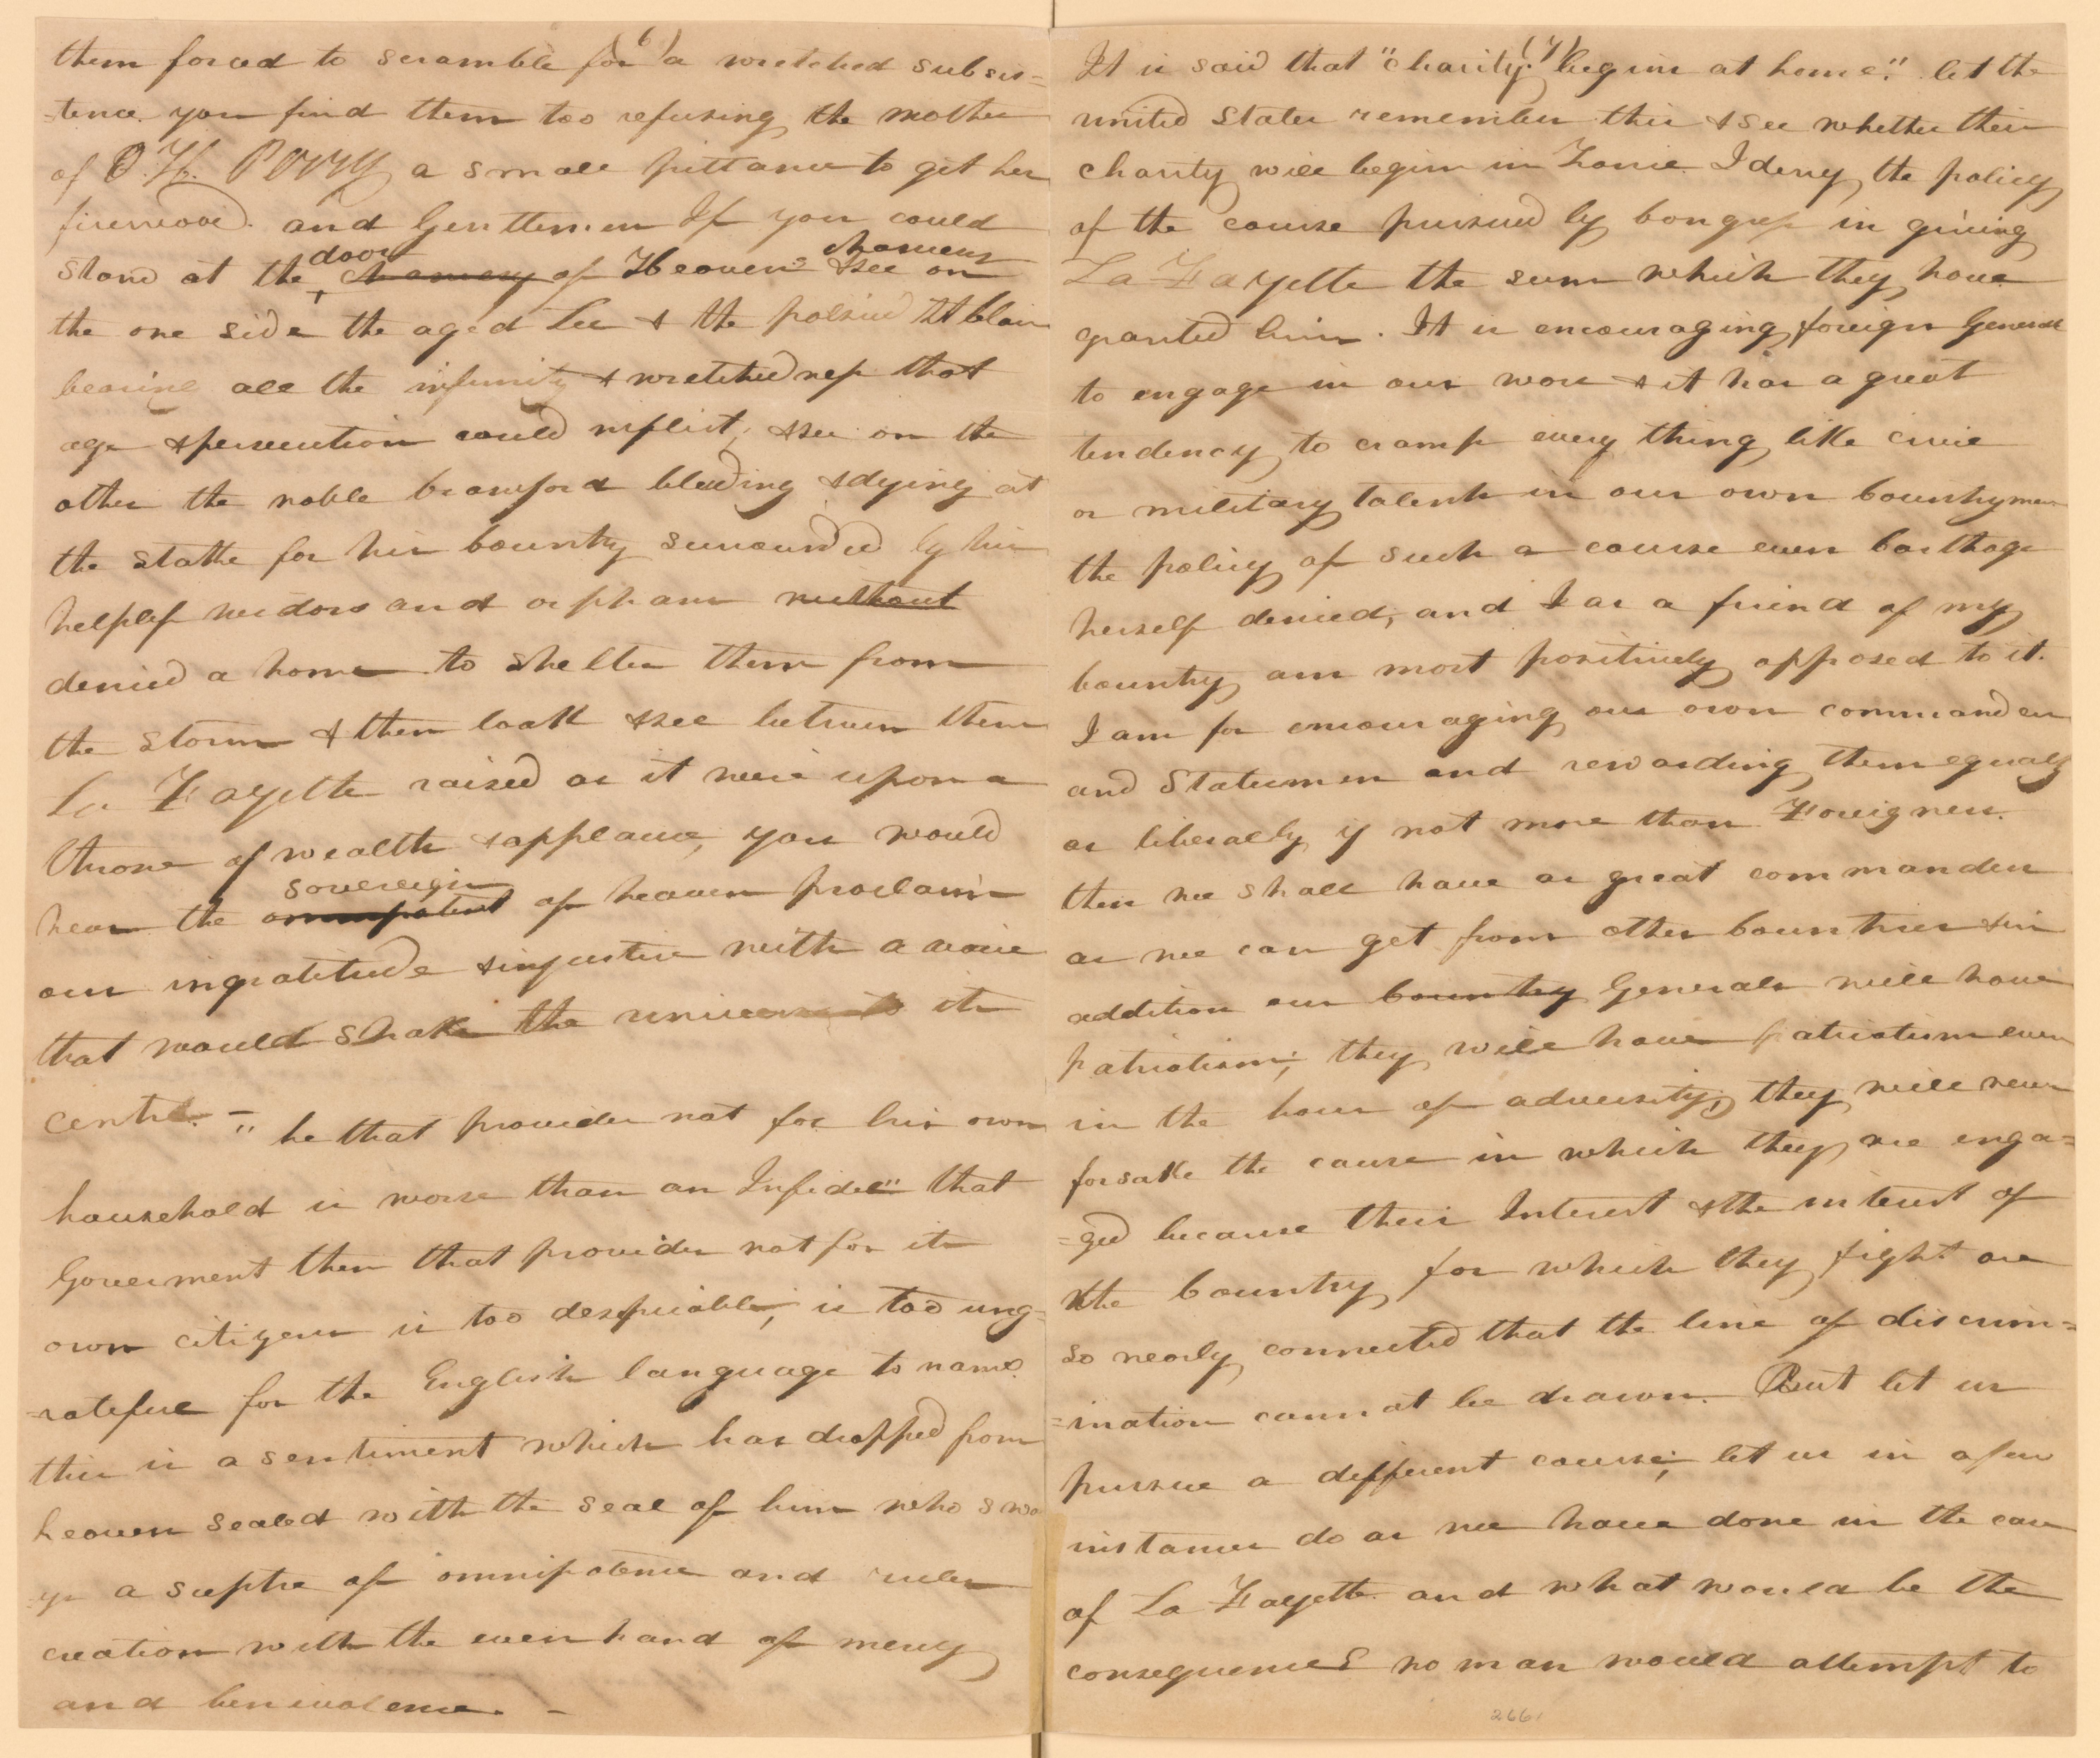 (6)
them forced to scramble for a wretched subsis=
=tence. you find them too refusing the mother
of O. H. Perry a small pittance to get her
firewood. and Gentlemen If you could
door chancery
stand at the chancery of Heaven & see on
the one side the aged Lee & the palsied St Clair
bearing all the infirmity & wretchedness that
age & persecution could inflict, & see on the
other the noble Crawford bleeding & dying at
the stake for his Country surrounded by his
helpless widow and orphans without
denied a home to shelter them from
the storm & then look & see between them
La Fayette raised as it were upon a
throne of wealth & applause, you would
sovereign
hear the omnipotent of heaven proclaim
our ingratitude & injustice with a voice
that would shake the universe to its
centre. - "he that provides not for his own
household is worse than an Infidel" that
Goverment then that provides not for its
own citizens is too despicable, is too ung=
=rateful for the English language to name.
this is a sentiment which has dropped from
heaven sealed with the seal of him who swa
=ys a sceptre of omnipotence and rules
creation with the even hand of mercy
and benevolence. -
(7)
It is said that "charity begins at home." let the
united States remember this & see whether their
charity will begin in France. I deny the policy
of the course pursued by Congress in giving
La Fayette the sum which they have
granted him. It is encouraging foreign Generals
to engage in our wars & it has a great
tendency to cramp every thing like civic
or military talents in our own Countrymen
the policy of such a course even Carthage
herself denied, and I as a friend of my
Country am most positively opposed to it.
I am for encouraging our own commanders
and Statesmen and rewarding them equally
as liberally if not more than Foreigners.
then we shall have as great commanders
as we can get from other Countries & in
addition our Country Generals will have
patriotism; they will have patriotism even
in the hour of adversity, they will never
forsake the cause in which they are enga=
=ged because their Interest & the interest of
the Country for which they fight are
so nearly connected that the line of discrim=
=ination cannot be drawn. But let us
pursue a different course; let us in a few
instances do as we have done in the case
of La Fayette and what would be the
consequences no man would attempt to
2661